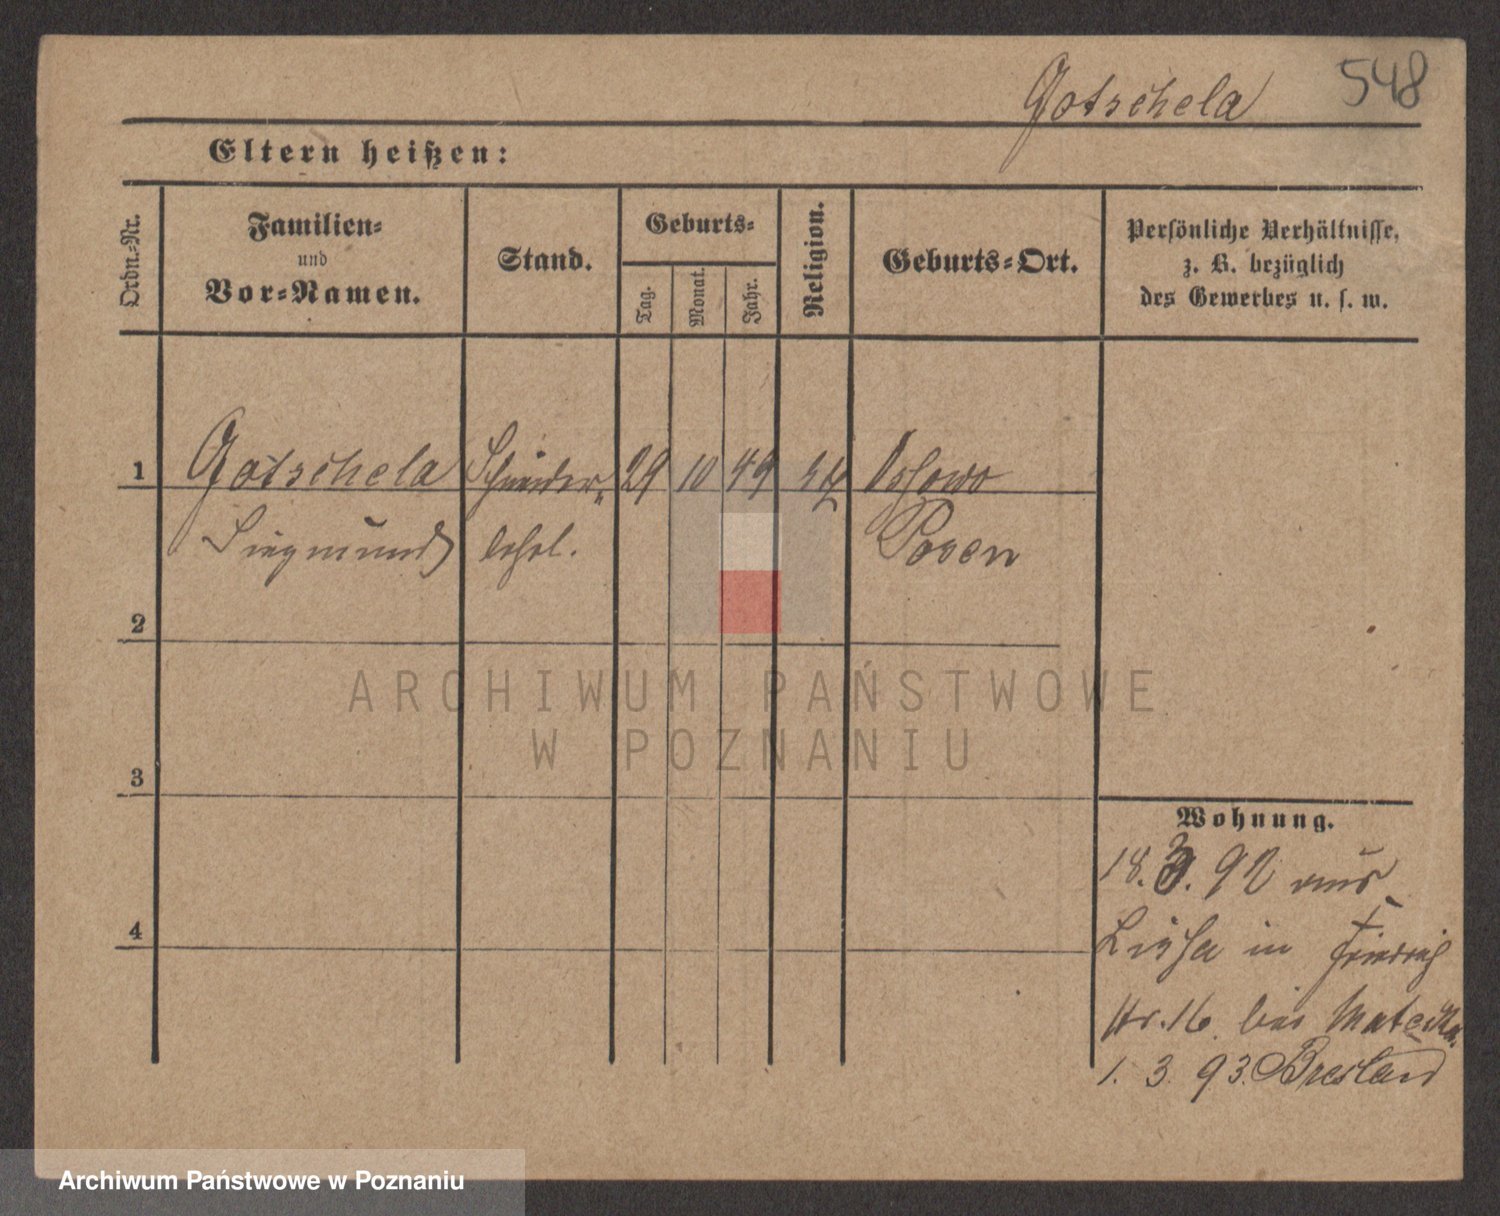 548
Gotschela
Eltern heißen:
Ordn.-Nr.
Familien-
und
Vor-Namen.
Stand.
Geburts-
Tag.
Monat.
Jahr.
Religion.
Geburts-Ort.
Persönliche Verhältnisse,
z. B. bezüglich
des Gewerbes u. s. w.
1
Gotschela
Schneider-
29
10
49
Posen
Siegmund
2
ARCHIWUM PAŃSTWOWE
W POZNANIU
3
Wohnung.
18. 3. 92 aus
4
Lissa in Friedrich
Str. 16 bei
1. 3. 93. Breslau
Archiwum Państwowe w Poznaniu